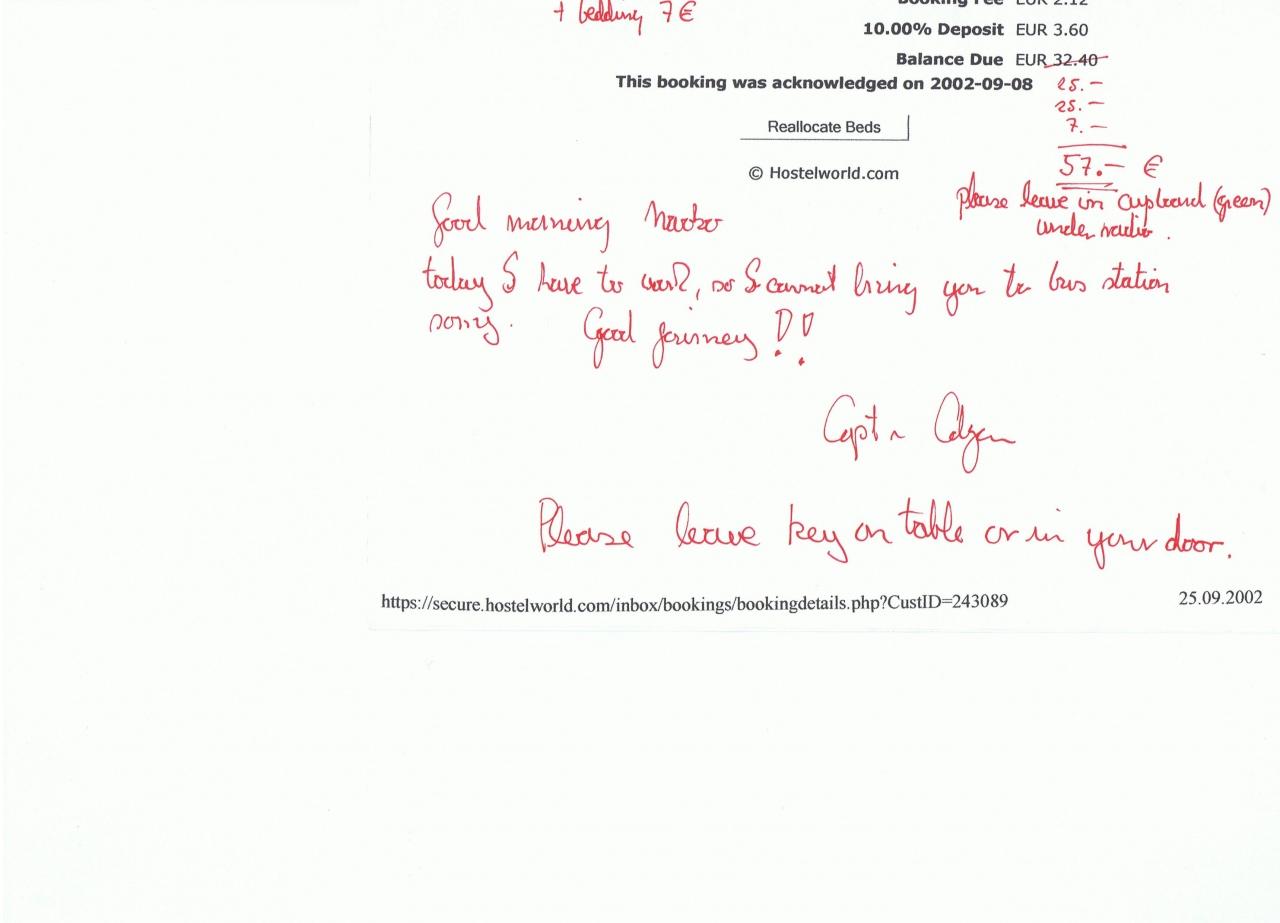 + bedding 7 €
Booking Fee EUR 2.12
10.00% Deposit EUR 3.60
Balance Due EUR 32.40
This booking was acknowledged on 2002-09-08
25.-
25.-
7.-
57.- €
Reallocate Beds
© Hostelworld.com
please leave in cupboard (green)
under radio.
Good morning
today I have to work, so I cannot bring you to bus station
sorry. Good journey !!
Capt'n
Please leave key on table or in your door.
https://secure.hostelworld.com/inbox/bookings/bookingdetails.php?CustID=243089 25.09.2002